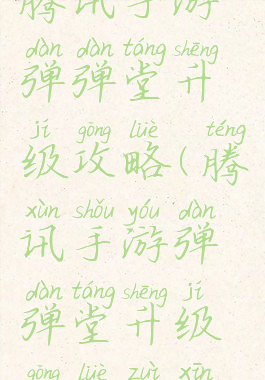 腾讯手游
dàn dàn táng shēng
弹弹堂升
jí gōng lüè téng
级攻略(腾
xùn shǒu yóu dàn
讯手游弹
dàn táng shēng jí
弹堂升级
gōng lüè zuì xīn